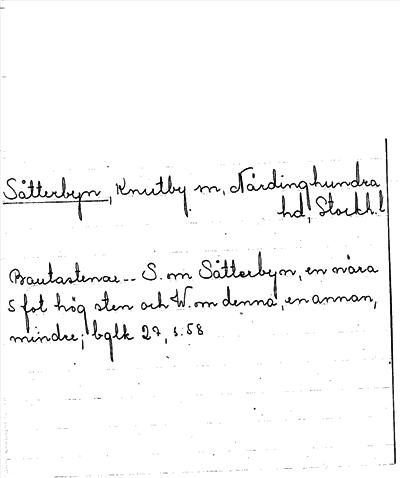 Såtterbyn, Knutby sn, Närdinghundra
hd, Stockh. l
Bautastenar -- S. om Såtterbyn, en nära
5 fot hög sten och W. om denna, en annan,
mindre; bglk 27, s. 58